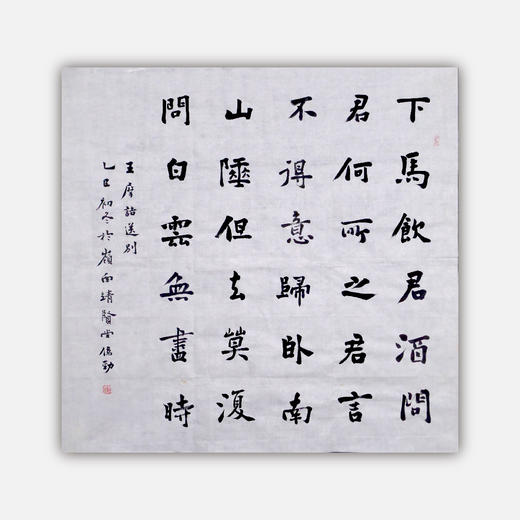 下馬飲君酒問
君何所之君言
不得意歸卧南
山陲但去莫復
問白雲無盡時
王摩詰送別
乙巳初冬於嶺南靖賢堂